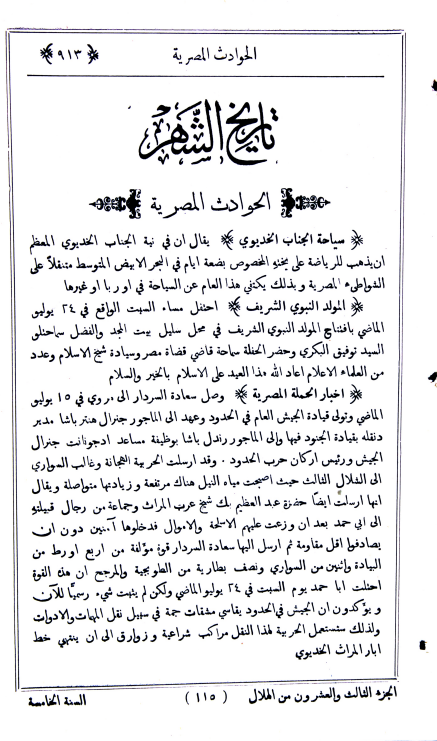 الحوادث المصرية ﴿ ٩١٣ ﴾
تاريخ الشهر
الحوادث المصرية
﴿ سياحة الجناب الخديوي ﴾ يقال ان في نية الجناب الخديوي المعظم
ان يذهب للرياضة على يخته المخصوص بضعة ايام في البحر الابيض المتوسط متنقلاً على
الشواطيء المصرية وبذلك يكتفي هذا العام عن السياحة في اوربا او غيرها
﴿ المولد النبوي الشريف ﴾ احتفل مساء السبت الواقع في ٢٤ يوليو
الماضي بافتتاح المولد النبوي الشريف في محل سليل بيت المجد والفضل سماحتلو
السيد توفيق البكري وحضر الحفلة سماحة قاضي قضاة مصر وسيادة شيخ الاسلام وعدد
من العلماء الاعلام اعاد الله هذا العيد على الاسلام بالخير والسلام
﴿ اخبار الحملة المصرية ﴾ وصل سعادة السردار الى مروي في ١٥ يوليو
الماضي وتولى قيادة الجيش العام في الحدود وعهد الى الماجور جنرال هنتر باشا مدير
دنقله بقيادة الجنود فيها والى الماجور رندل باشا بوظيفة مساعد ادجوتانت جنرال
الجيش ورئيس اركان حرب الحدود . وقد ارسلت الحربية الهجانة وغالب السواري
الى الشلال الثالث حيث اصبحت مياه النيل هناك مرتفعة وزيادتها متواصلة ويقال
انها ارسلت ايضاً حضرة عبد العظيم بك شيخ عرب المراث وجماعة من رجال قبيلته
الى ابي حمد بعد ان وزعت عليهم الاسلحة والاموال فدخلوها آمنين دون ان
يصادفوا اقل مقاومة ثم ارسل اليها سعادة السردار قوة مؤلفة من اربع اورط من
البيادة واثنين من السواري ونصف بطارية من الطوبجية والمرجح ان هذه القوة
احتلت ابا حمد يوم السبت في ٢٤ يوليو الماضي ولكن لم يثبت شيء رسميًا للآن
ويؤكدون ان الجيش في الحدود يقاسي مشقات جمة في سبيل نقل المهمات والادوات
ولذلك ستستعمل الحربية لهذا النقل مراكب شراعية وزوارق الى ان ينتهي خط
ابار المراث الخديوي
الجزء الثالث والعشرون من الهلال ( ١١٥ ) السنة الخامسة